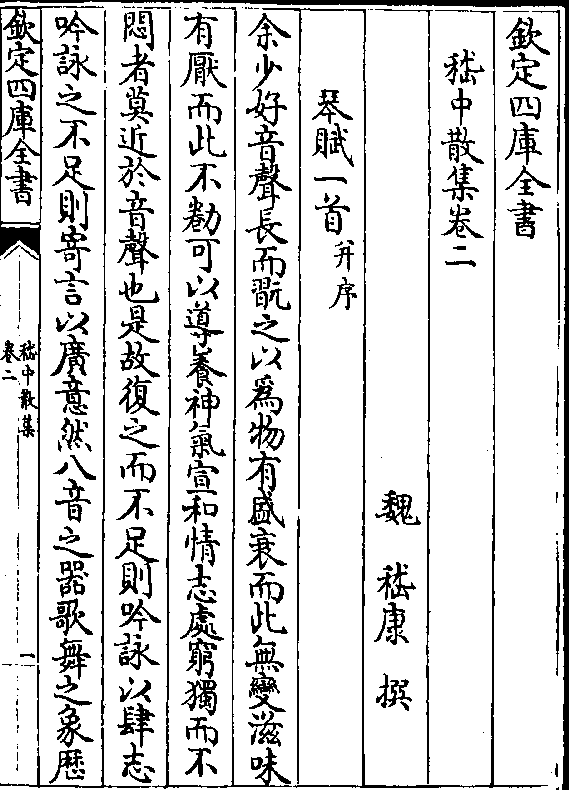 欽定四庫全書
嵇中散集卷二
魏 嵇康 撰
琴賦一首并序
余少好音聲長而翫之以為物有盛衰而此無變滋味
有厭而此不勌可以導養神氣宣和情志處窮獨而不
悶者莫近於音聲也是故復之而不足則吟詠以肆志
吟詠之不足則寄言以廣意然八音之器歌舞之象歴
欽定四庫全書
嵇中散集
卷二
一